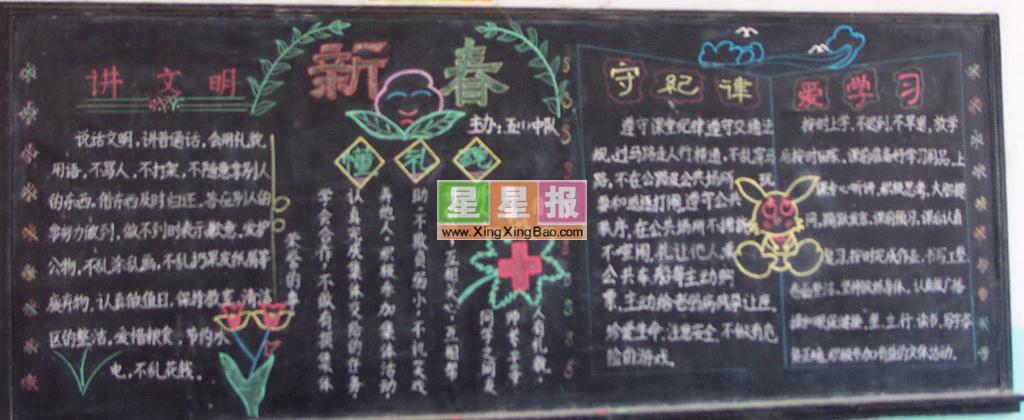 讲文明
说话文明，讲普通话，会用礼貌
用语，不骂人，不打架，不随意拿别人
的东西，借东西及时归还，答应别人的
事努力做到，做不到时表示歉意，爱护
公物，不乱涂乱画，不乱扔果皮纸屑等
废弃物，认真做值日，保持教室、清洁
区的整洁，爱惜粮食，节约水
电，不乱花钱。
新春
主办：五(1)中队
懂礼貌
人有礼貌，
师长平等
同学之间友
互相关心，互相帮
助，不欺负弱小，不讥笑戏
弄他人，积极参加集体活动，
认真完成集体交给的任务，
学会合作，不做有损集体
荣誉的事
守纪律
遵守课堂纪律遵守交通法
规，过马路走人行横道，不乱穿马
路，不在公路及公共场所玩
耍和追逐打闹，遵守公共
秩序，在公共场所不拥挤
不喧闹，礼让他人，乘
公共车、船等主动购
票，主动给老弱病残孕让座，
珍爱生命，注意安全，不做有危
险的游戏。
爱学习
按时上学，不迟到，不早退，放学
后按时回家，课前准备好学习用品，上
课专心听讲，积极思考，大胆提
问，踊跃发言，课前预习，课后认真
复习，按时完成作业，书写工整
卷面整洁，坚持锻炼身体，认真做广播
操和眼保健操，坐、立、行、读书、写字姿
势正确，积极参加有益的文体活动。
星星报
www.XingXingBao.com